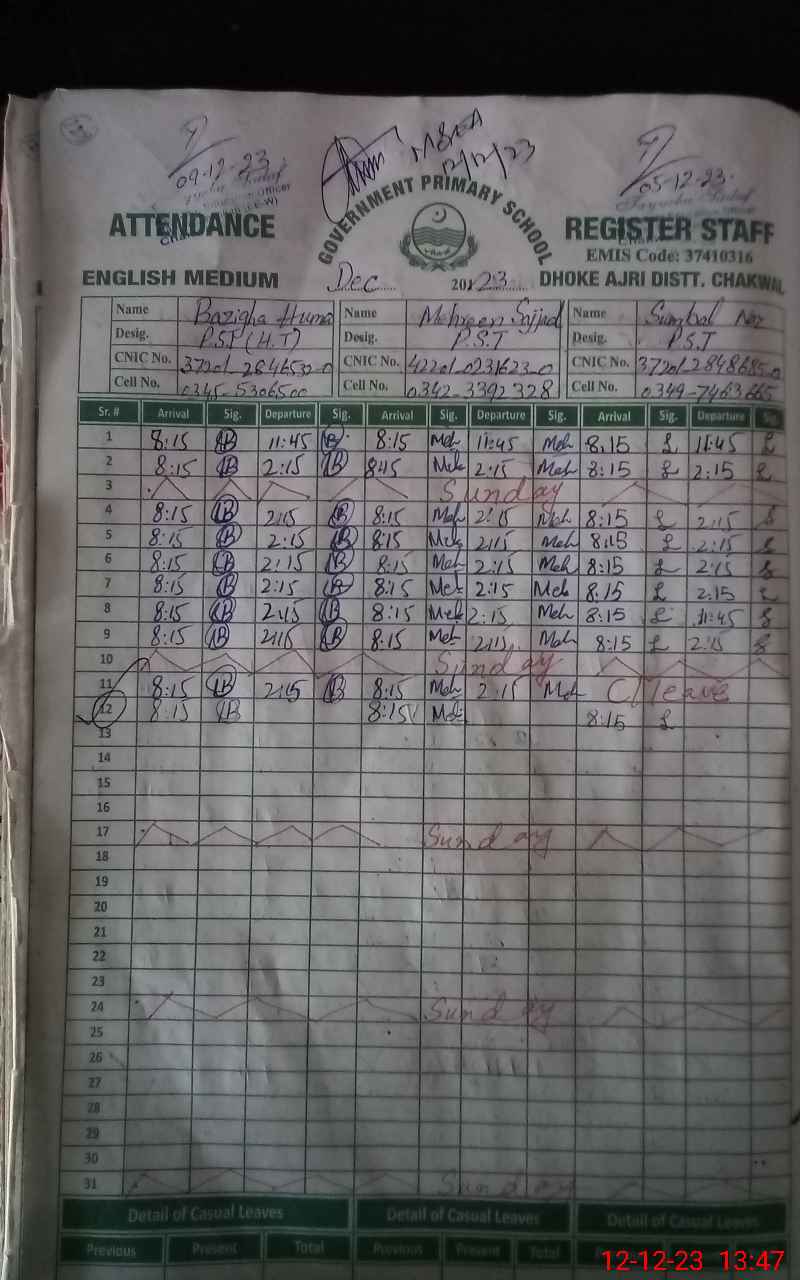 09-12-23
MSEA
12/12/23
05-12-23
ATTENDANCE
GOVERNMENT PRIMARY SCHOOL
REGISTER STAFF
EMIS Code: 37410316
ENGLISH MEDIUM
Dec 2023
DHOKE AJRI DISTT. CHAKWAL
Name Bazigha Huma Name Mehreen Sajjad Name Sumbal
Desig. P.S.T (H.T) Desig. P.S.T Desig. P.S.T
CNIC No. 37201-2846532-0 CNIC No. 42201-0231623-0 CNIC No. 37201-2848685-0
Cell No. 0345-5306500 Cell No. 0342-3392328 Cell No. 0349-7463665
Sr. # Arrival Sig. Departure Sig. Arrival Sig. Departure Sig. Arrival Sig. Departure Sig
1 8:15 B 11:45 B 8:15 Meh 11:45 Meh 8:15 £ 11:45 £
2 8:15 B 2:15 B 845 Meh 2:15 Meh 8:15 £ 2:15 £
3 Sunday
4 8:15 B 2:15 B 8:15 Meh 2:15 Meh 8:15 £ 2:15 £
5 8:15 B 2:15 B 8:15 Meh 2:15 Meh 8:15 £ 2:15 £
6 8:15 B 2:15 B 8:15 Meh 2:15 Meh 8:15 £ 2:15 £
7 8:15 B 2:15 B 8:15 Meh 2:15 Meh 8:15 £ 2:15 £
8 8:15 B 2:15 B 8:15 Meh 2:15 Meh 8:15 £ 11:45 £
9 8:15 B 2:15 B 8:15 Meh 2:15 Meh 8:15 £ 2:15 £
10 Sunday
11 8:15 B 2:15 B 8:15 Meh 2:15 Meh C/leave
12 8:15 B 8:15 Meh 8:15 £
13
14
15
16
17 Sunday
18
19
20
21
22
23
24 Sunday
25
26
27
28
29
30
31 Sunday
Detail of Casual Leaves Detail of Casual Leaves Detail of Casual Leaves
Previous Present Total Previous Present Total
12-12-23 13:47